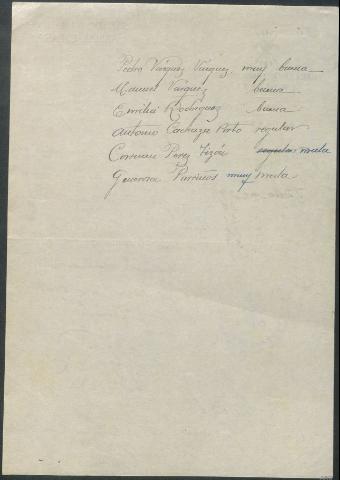 Pedro Vázquez Vázquez muy buena
Manuel Vázquez buena
Emilia Rodríguez buena
Antonio Cachaza Porto regular
Carmen Perez Tizón regular mala
Generosa Parritos muy mala